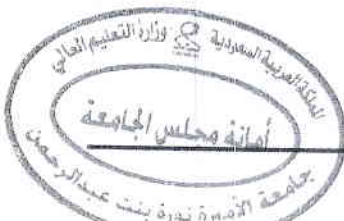 المملكة العربية السعودية
وزارة التعليم العالي
أمانة مجلس الجامعة
جامعة الأميرة نورة بنت عبدالرحمن